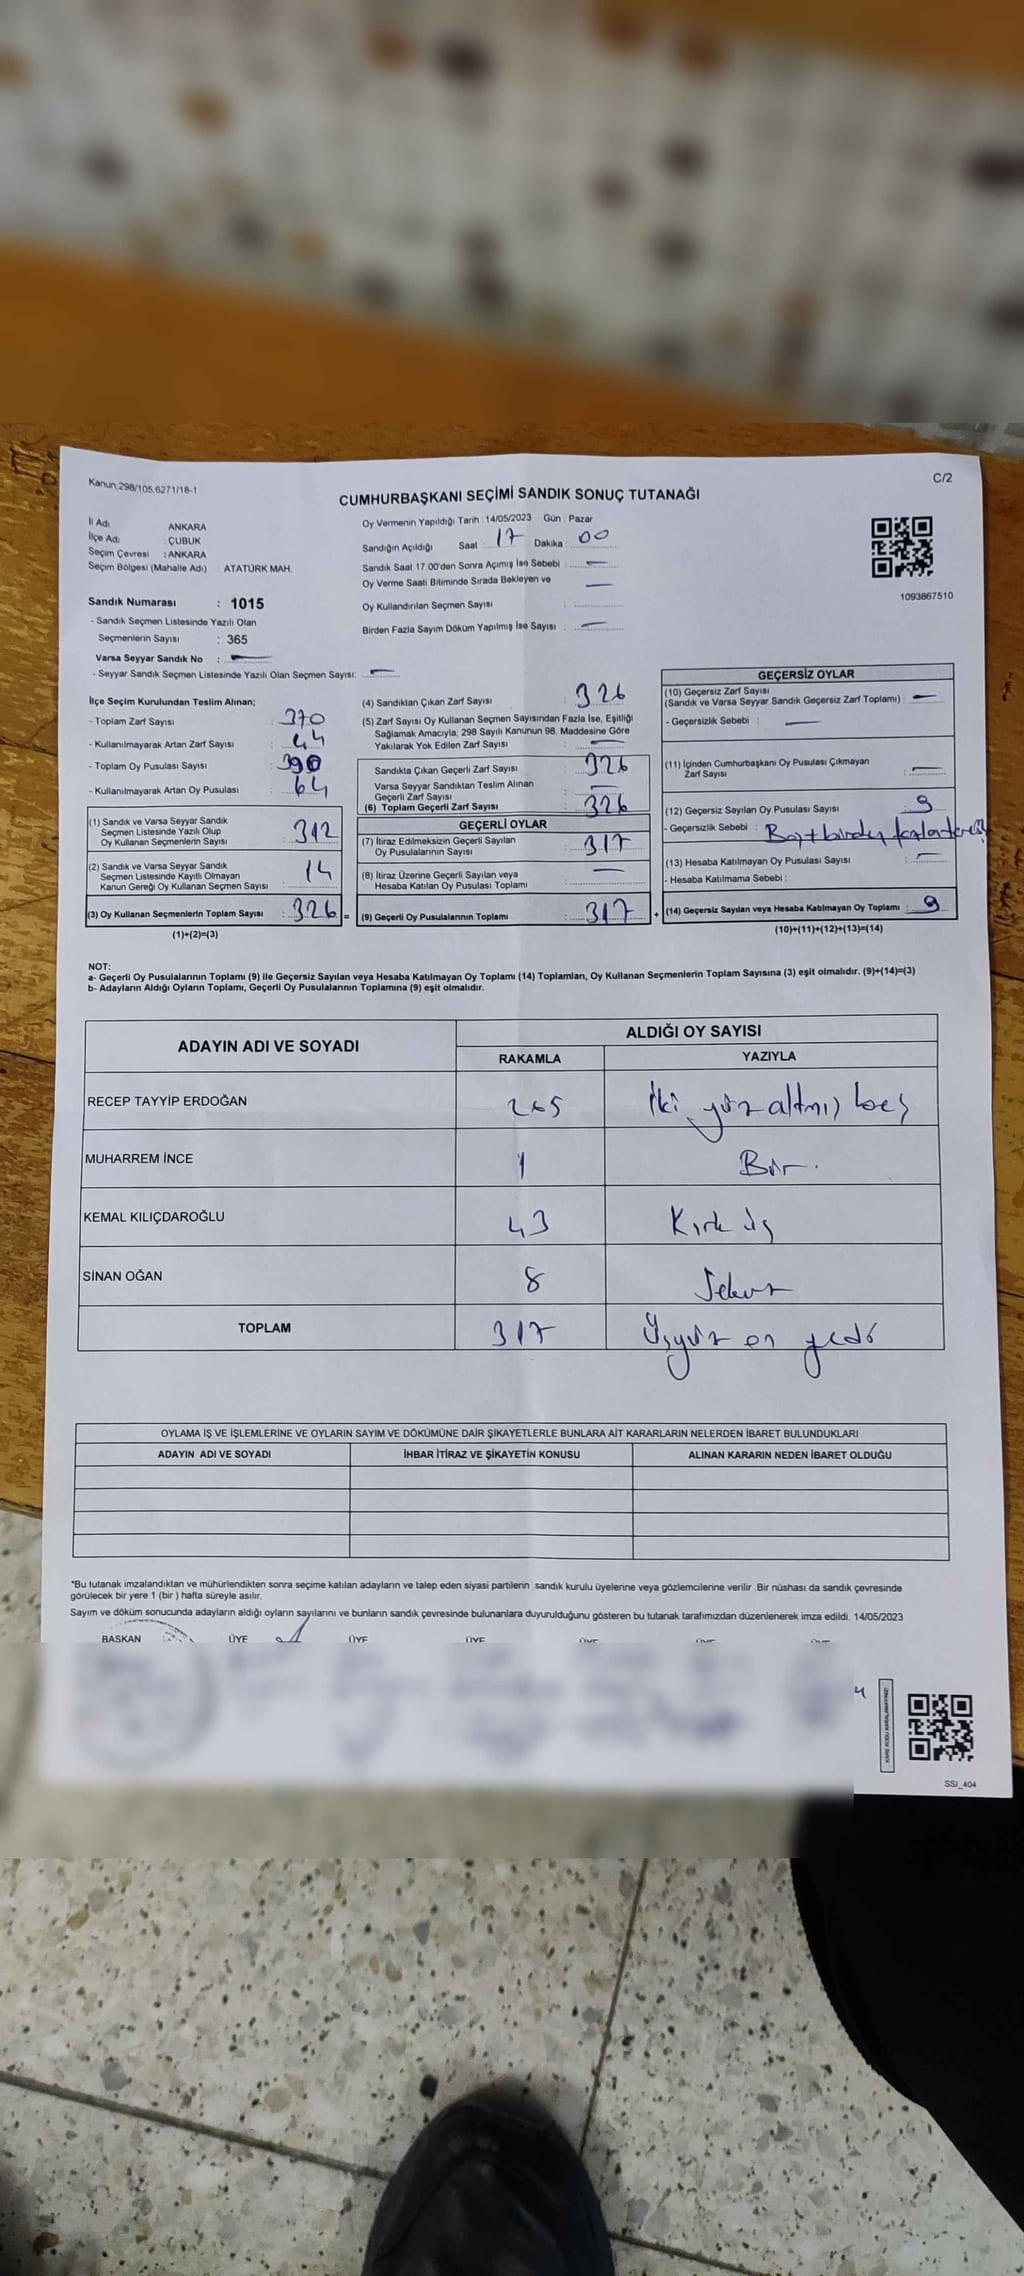 Kanun,298/105,6271/18-1
C/2
CUMHURBAŞKANI SEÇİMİ SANDIK SONUÇ TUTANAĞI
İl Adı : ANKARA
İlçe Adı : ÇUBUK
Seçim Çevresi : ANKARA
Seçim Bölgesi (Mahalle Adı) : ATATÜRK MAH.
Sandık Numarası : 1015
- Sandık Seçmen Listesinde Yazılı Olan
Seçmenlerin Sayısı : 365
Varsa Seyyar Sandık No :
- Seyyar Sandık Seçmen Listesinde Yazılı Olan Seçmen Sayısı:
Oy Vermenin Yapıldığı Tarih : 14/05/2023 Gün : Pazar
Sandığın Açıldığı Saat : 17 Dakika : 00
Sandık Saat 17.00'den Sonra Açımış İse Sebebi :
Oy Verme Saati Bitiminde Sırada Bekleyen ve
Oy Kullandırılan Seçmen Sayısı :
Birden Fazla Sayım Döküm Yapılmış İse Sayısı :
1093867510
İlçe Seçim Kurulundan Teslim Alınan;
- Toplam Zarf Sayısı : 370
- Kullanılmayarak Artan Zarf Sayısı : 44
- Toplam Oy Pusulası Sayısı : 390
- Kullanılmayarak Artan Oy Pusulası : 64
(1) Sandık ve Varsa Seyyar Sandık
Seçmen Listesinde Yazılı Olup
Oy Kullanan Seçmenlerin Sayısı : 312
(2) Sandık ve Varsa Seyyar Sandık
Seçmen Listesinde Kayıtlı Olmayan
Kanun Gereği Oy Kullanan Seçmen Sayısı : 14
(3) Oy Kullanan Seçmenlerin Toplam Sayısı : 326 =
(1)+(2)=(3)
(4) Sandıktan Çıkan Zarf Sayısı : 326
(5) Zarf Sayısı Oy Kullanan Seçmen Sayısından Fazla İse, Eşitliği
Sağlamak Amacıyla; 298 Sayılı Kanunun 98. Maddesine Göre
Yakılarak Yok Edilen Zarf Sayısı :
Sandıkta Çıkan Geçerli Zarf Sayısı : 326
Varsa Seyyar Sandıktan Teslim Alınan
Geçerli Zarf Sayısı :
(6) Toplam Geçerli Zarf Sayısı : 326
GEÇERLİ OYLAR
(7) İtiraz Edilmeksizin Geçerli Sayılan
Oy Pusulalarının Sayısı : 317
(8) İtiraz Üzerine Geçerli Sayılan veya
Hesaba Katılan Oy Pusulası Toplamı :
(9) Geçerli Oy Pusulalarının Toplamı : 317 +
GEÇERSİZ OYLAR
(10) Geçersiz Zarf Sayısı
(Sandık ve Varsa Seyyar Sandık Geçersiz Zarf Toplamı) :
- Geçersizlik Sebebi :
(11) İçinden Cumhurbaşkanı Oy Pusulası Çıkmayan
Zarf Sayısı :
(12) Geçersiz Sayılan Oy Pusulası Sayısı : 9
- Geçersizlik Sebebi : Boş + birden fazla
(13) Hesaba Katılmayan Oy Pusulası Sayısı :
- Hesaba Katılmama Sebebi :
(14) Geçersiz Sayılan veya Hesaba Katılmayan Oy Toplamı : 9
(10)+(11)+(12)+(13)=(14)
NOT:
a- Geçerli Oy Pusulalarının Toplamı (9) ile Geçersiz Sayılan veya Hesaba Katılmayan Oy Toplamı (14) Toplamları, Oy Kullanan Seçmenlerin Toplam Sayısına (3) eşit olmalıdır. (9)+(14)=(3)
b- Adayların Aldığı Oyların Toplamı, Geçerli Oy Pusulalarının Toplamına (9) eşit olmalıdır.
ADAYIN ADI VE SOYADI ALDIĞI OY SAYISI
RAKAMLA YAZIYLA
RECEP TAYYİP ERDOĞAN 265 İki yüz altmış beş
MUHARREM İNCE 1 Bir.
KEMAL KILIÇDAROĞLU 43 Kırk üç
SİNAN OĞAN 8 Sekiz
TOPLAM 317 Üçyüz on yedi
OYLAMA İŞ VE İŞLEMLERİNE VE OYLARIN SAYIM VE DÖKÜMÜNE DAİR ŞİKAYETLERLE BUNLARA AİT KARARLARIN NELERDEN İBARET BULUNDUKLARI
ADAYIN ADI VE SOYADI İHBAR İTİRAZ VE ŞİKAYETİN KONUSU ALINAN KARARIN NEDEN İBARET OLDUĞU
*Bu tutanak imzalandıktan ve mühürlendikten sonra seçime katılan adayların ve talep eden siyasi partilerin sandık kurulu üyelerine veya gözlemcilerine verilir .Bir nüshası da sandık çevresinde
görülecek bir yere 1 (bir ) hafta süreyle asılır.
Sayım ve döküm sonucunda adayların aldığı oyların sayılarını ve bunların sandık çevresinde bulunanlara duyurulduğunu gösteren bu tutanak tarafımızdan düzenlenerek imza edildi. 14/05/2023
BAŞKAN ÜYE ÜYE ÜYE
SSI_404